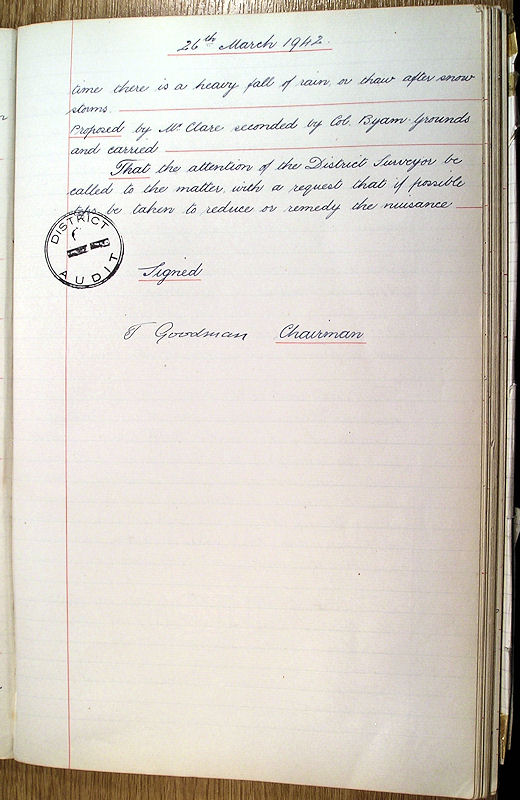 26th March 1942.
time there is a heavy fall of rain, or thaw after snow
storms.
Proposed by Mr Clare seconded by Col. Byam-Grounds
and carried
That the attention of the District Surveyor be
called to the matter, with a request that if possible
be taken to reduce or remedy the nuisance
DISTRICT
AUDIT
Signed
T Goodman Chairman